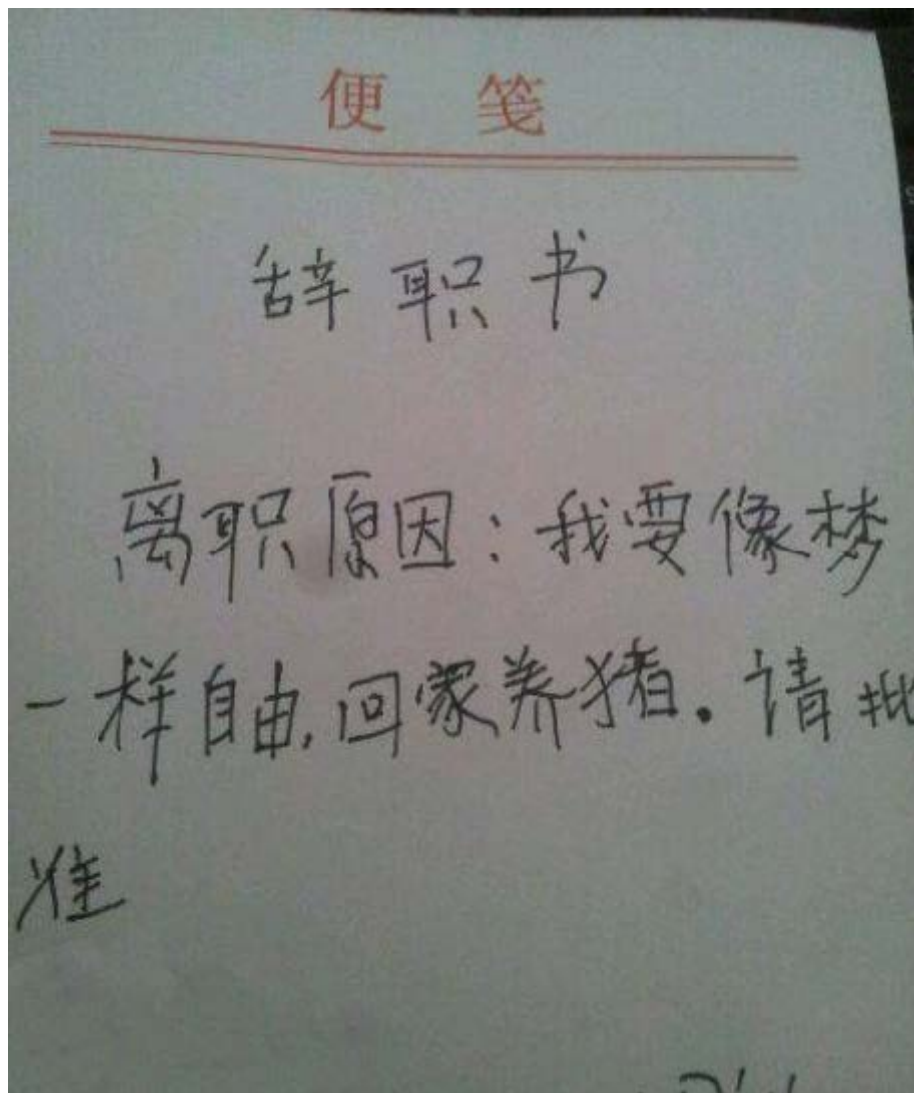 便 笺
辞职书
离职原因：我要像梦
一样自由,回家养猪。请批
准